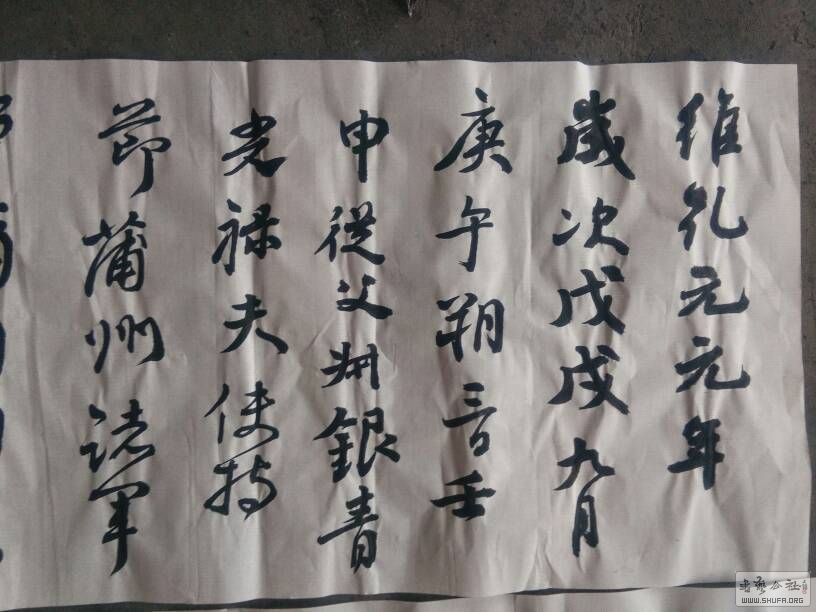 維乾元元年
歲次戊戌九月
庚午朔三日壬
申從父叔銀青
光祿夫使持
節蒲州諸軍
書藝公社
WWW.SHUFA.ORG